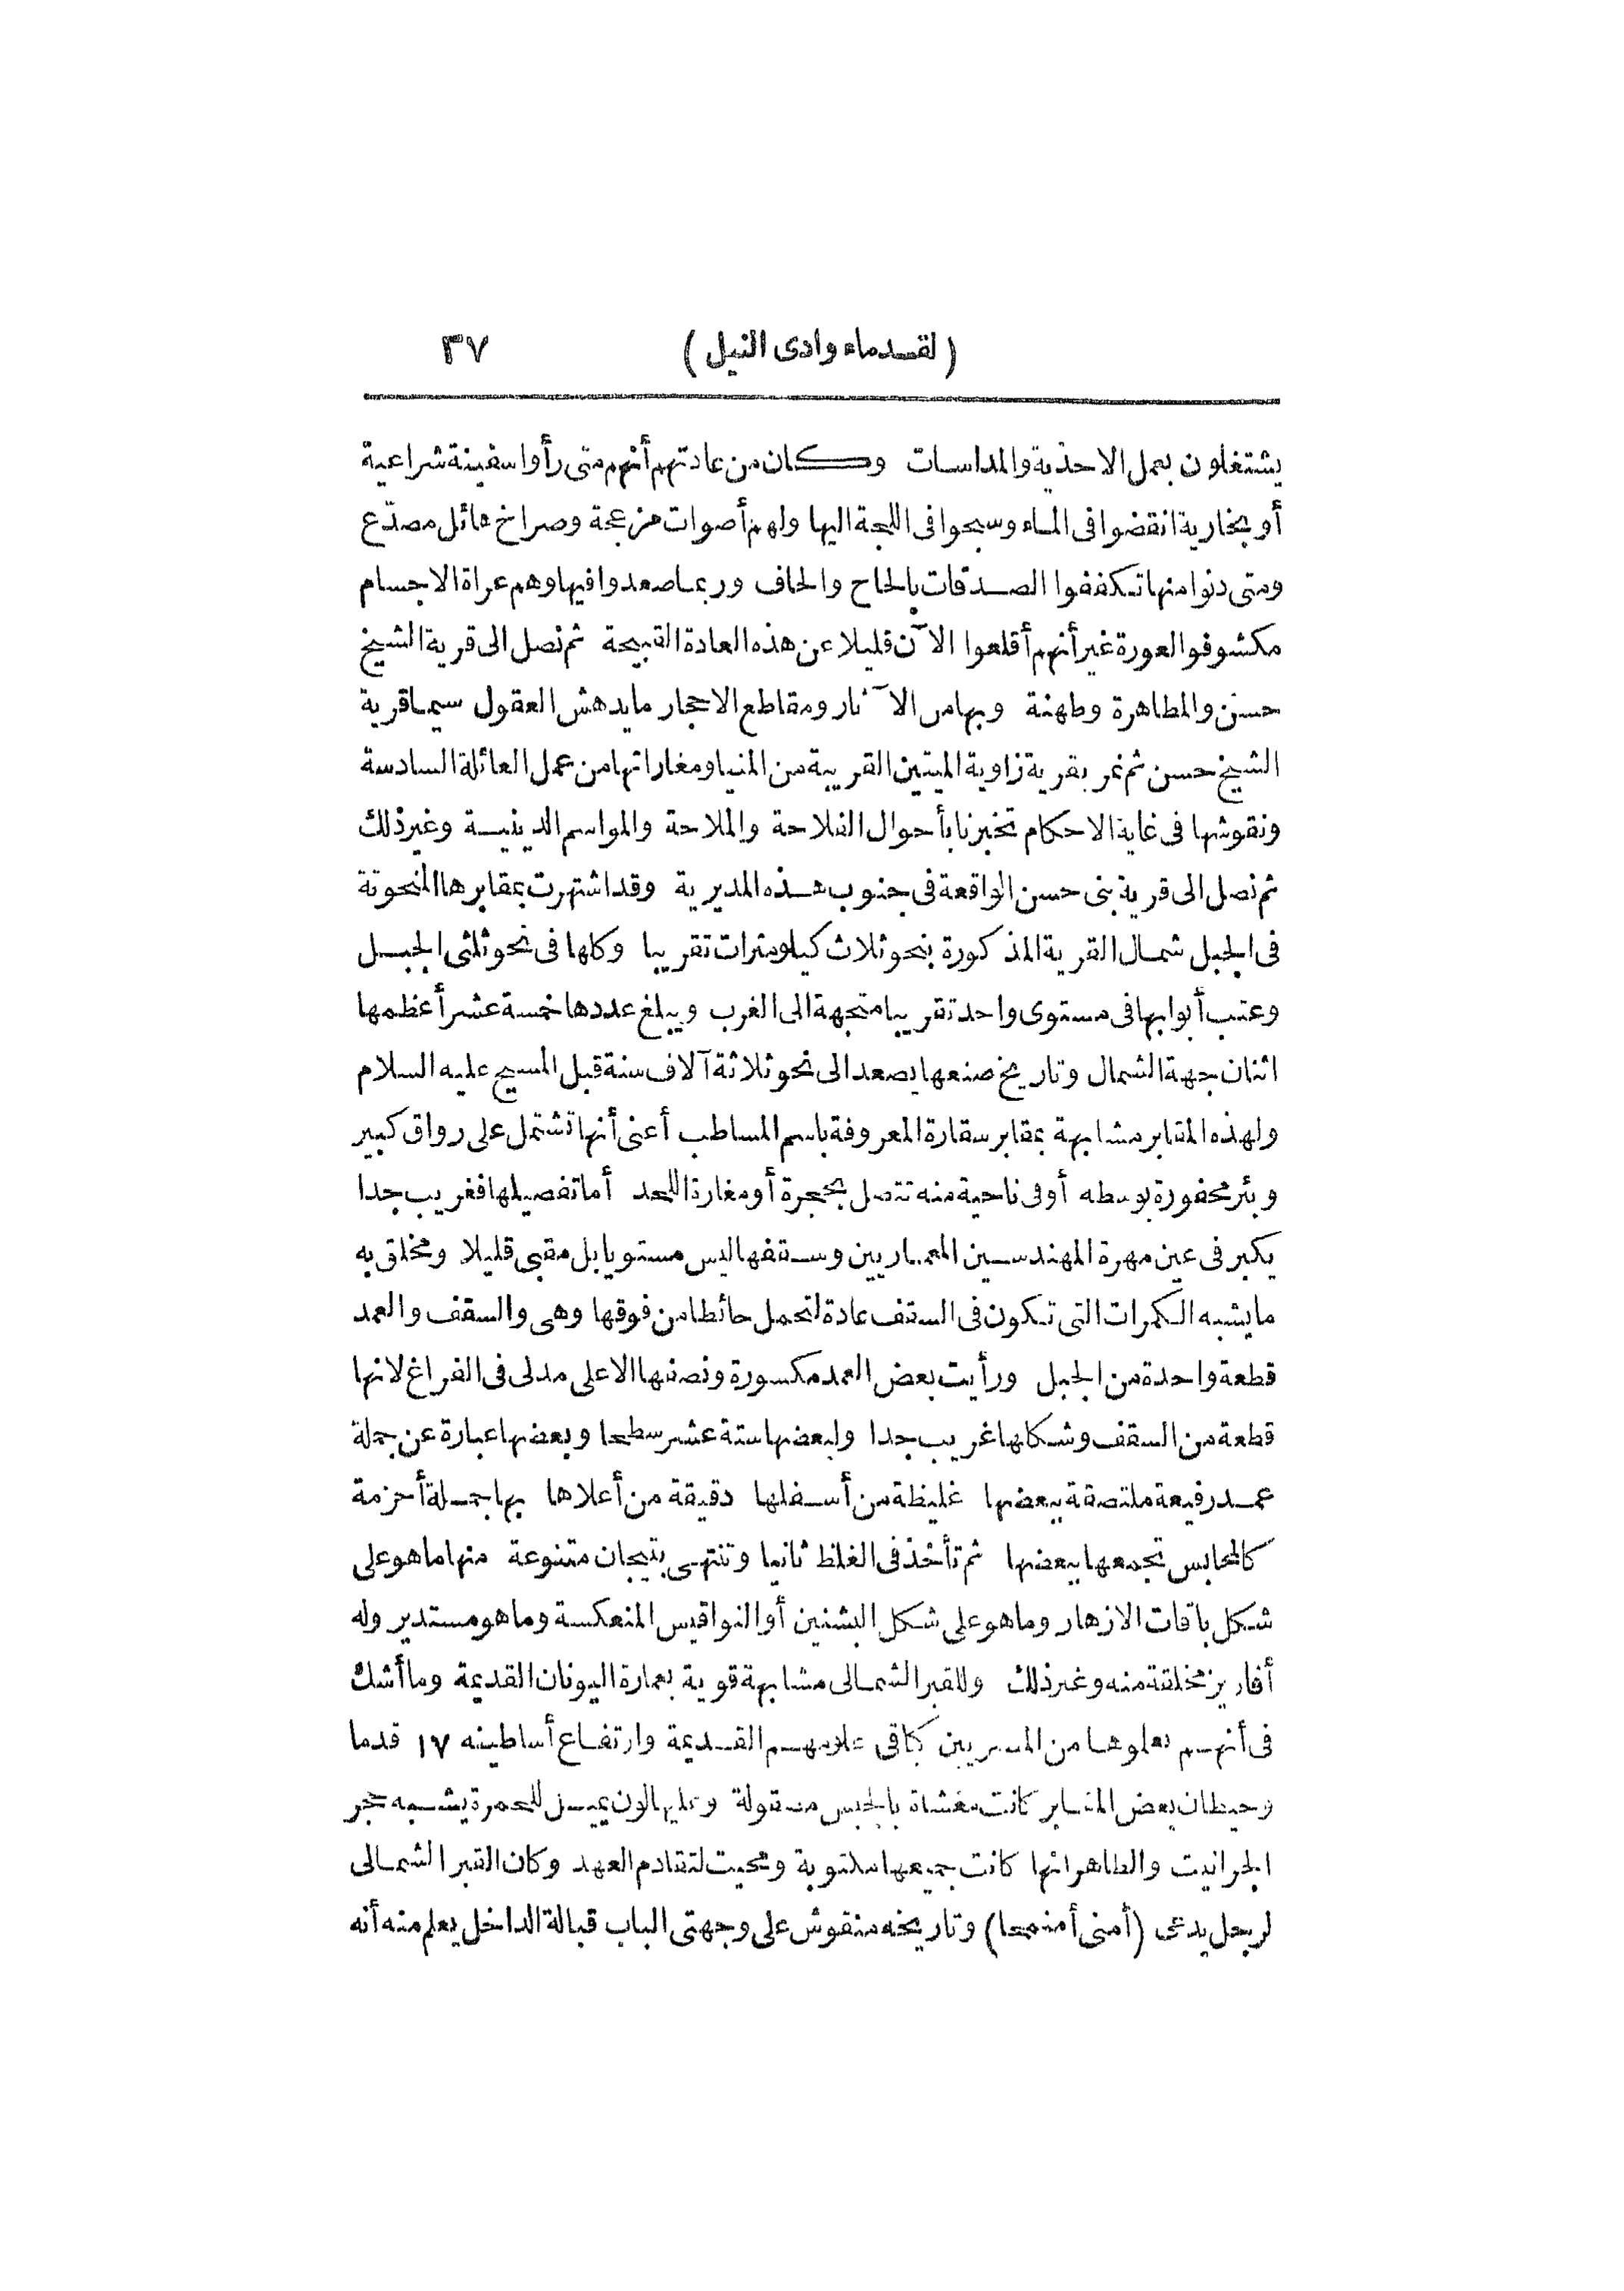 (لقدماء وادى النيل) ٣٧
يشتغلون بعمل الاحذية والمداسات وكان من عادتهم أنهم متى رأوا سفينة شراعية
أو بخارية انقضوا فى الماء وسبحوا فى اللجة اليها ولهم أصوات مزعجة وصراخ هائل مصدّع
ومتى دنوا منها تكففوا الصدقات بالحاح والحاف وربما صعدوا فيها وهم عراة الاجسام
مكشوفو العورة غير أنهم أقلعوا الآن قليلا عن هذه العادة القبيحة ثم نصل الى قرية الشيخ
حسن والمطاهرة وطهنة وبها من الآثار ومقاطع الاحجار ما يدهش العقول سيما قرية
الشيخ حسن ثم نمر بقرية زاوية الميتين القريبة من المنيا ومغاراتها من عمل العائلة السادسة
ونقوشها فى غاية الاحكام تخبرنا بأحوال الفلاحة والملاحة والمواسم الدينية وغير ذلك
ثم نصل الى قرية بنى حسن الواقعة فى جنوب هذه المديرية وقد اشتهرت بمقابرها المنحوتة
فى الجبل شمال القرية المذكورة بنحو ثلاث كيلومترات تقريبا وكلها فى نحو ثلثى الجبل
وعتب أبوابها فى مستوى واحد تقريبا متجهة الى الغرب ويبلغ عددها خمسة عشر أعظمها
اثنان جهة الشمال وتاريخ صنعها يصعد الى نحو ثلاثة آلاف سنة قبل المسيح عليه السلام
ولهذه المقابر مشابهة بمقابر سقارة المعروفة باسم المساطب أعنى أنها تشتمل على رواق كبير
وبئر محفورة بوسطه أو فى ناحية منه تتصل بحجرة أو مغارة اللحد أما تفصيلها فغريب جدا
يكبر فى عين مهرة المهندسين المعماريين وسقفها ليس مستويا بل مقبى قليلا ومخلق به
ما يشبه الكمرات التى تكون فى السقف عادة لتحمل حائطا من فوقها وهى والسقف والعمد
قطعة واحدة من الجبل ورأيت بعض العمد مكسورة ونصفها الاعلى مدلى فى الفراغ لانها
قطعة من السقف وشكلها غريب جدا ولبعضها ستة عشر سطحا وبعضها عبارة عن جملة
عمد رفيعة ملتصقة ببعضها غليظة من أسفلها دقيقة من أعلاها بها جملة أحزمة
كالمحابس تجمعها ببعضها ثم تأخذ فى الغلظ ثانيا وتنتهى بتيجان متنوعة منها ما هو على
شكل باقات الازهار وما هو على شكل البشنين أو النواقيس المنعكسة وما هو مستدير وله
أفاريز مخلقة منه وغير ذلك وللقبر الشمالى مشابهة قوية بعمارة اليونان القديمة وما أشك
فى أنهم نقلوها من المصريين كباقى علومهم القديمة وارتفاع أساطينه ١٧ قدما
وحيطان بعض المقابر كانت مغشاة بالجبس مصقولة وعليها لون يميل للحمرة يشبه حجر
الجرانيت والظاهر انها كانت جميعها مكتوبة ومحيت لتقادم العهد وكان القبر الشمالى
لرجل يدعى (أمنى أمنمحا) وتاريخه منقوش على وجهتى الباب قبالة الداخل يعلم منه أنه